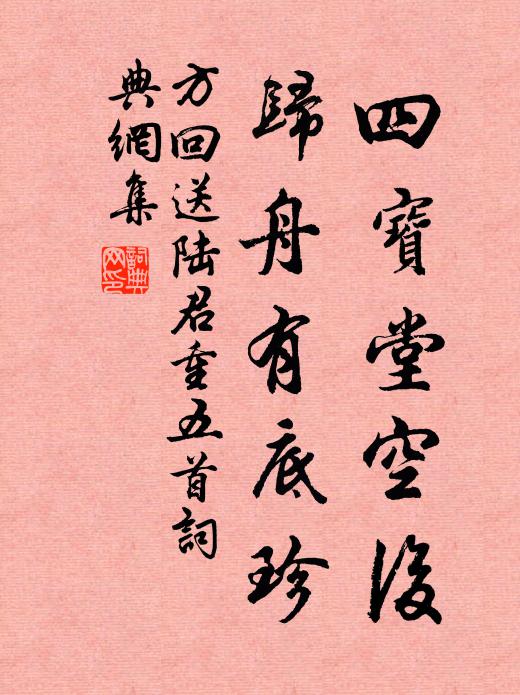 四寶堂空後
歸舟有底珍
方回送陸君重五首詞
典網集
詞典
网印